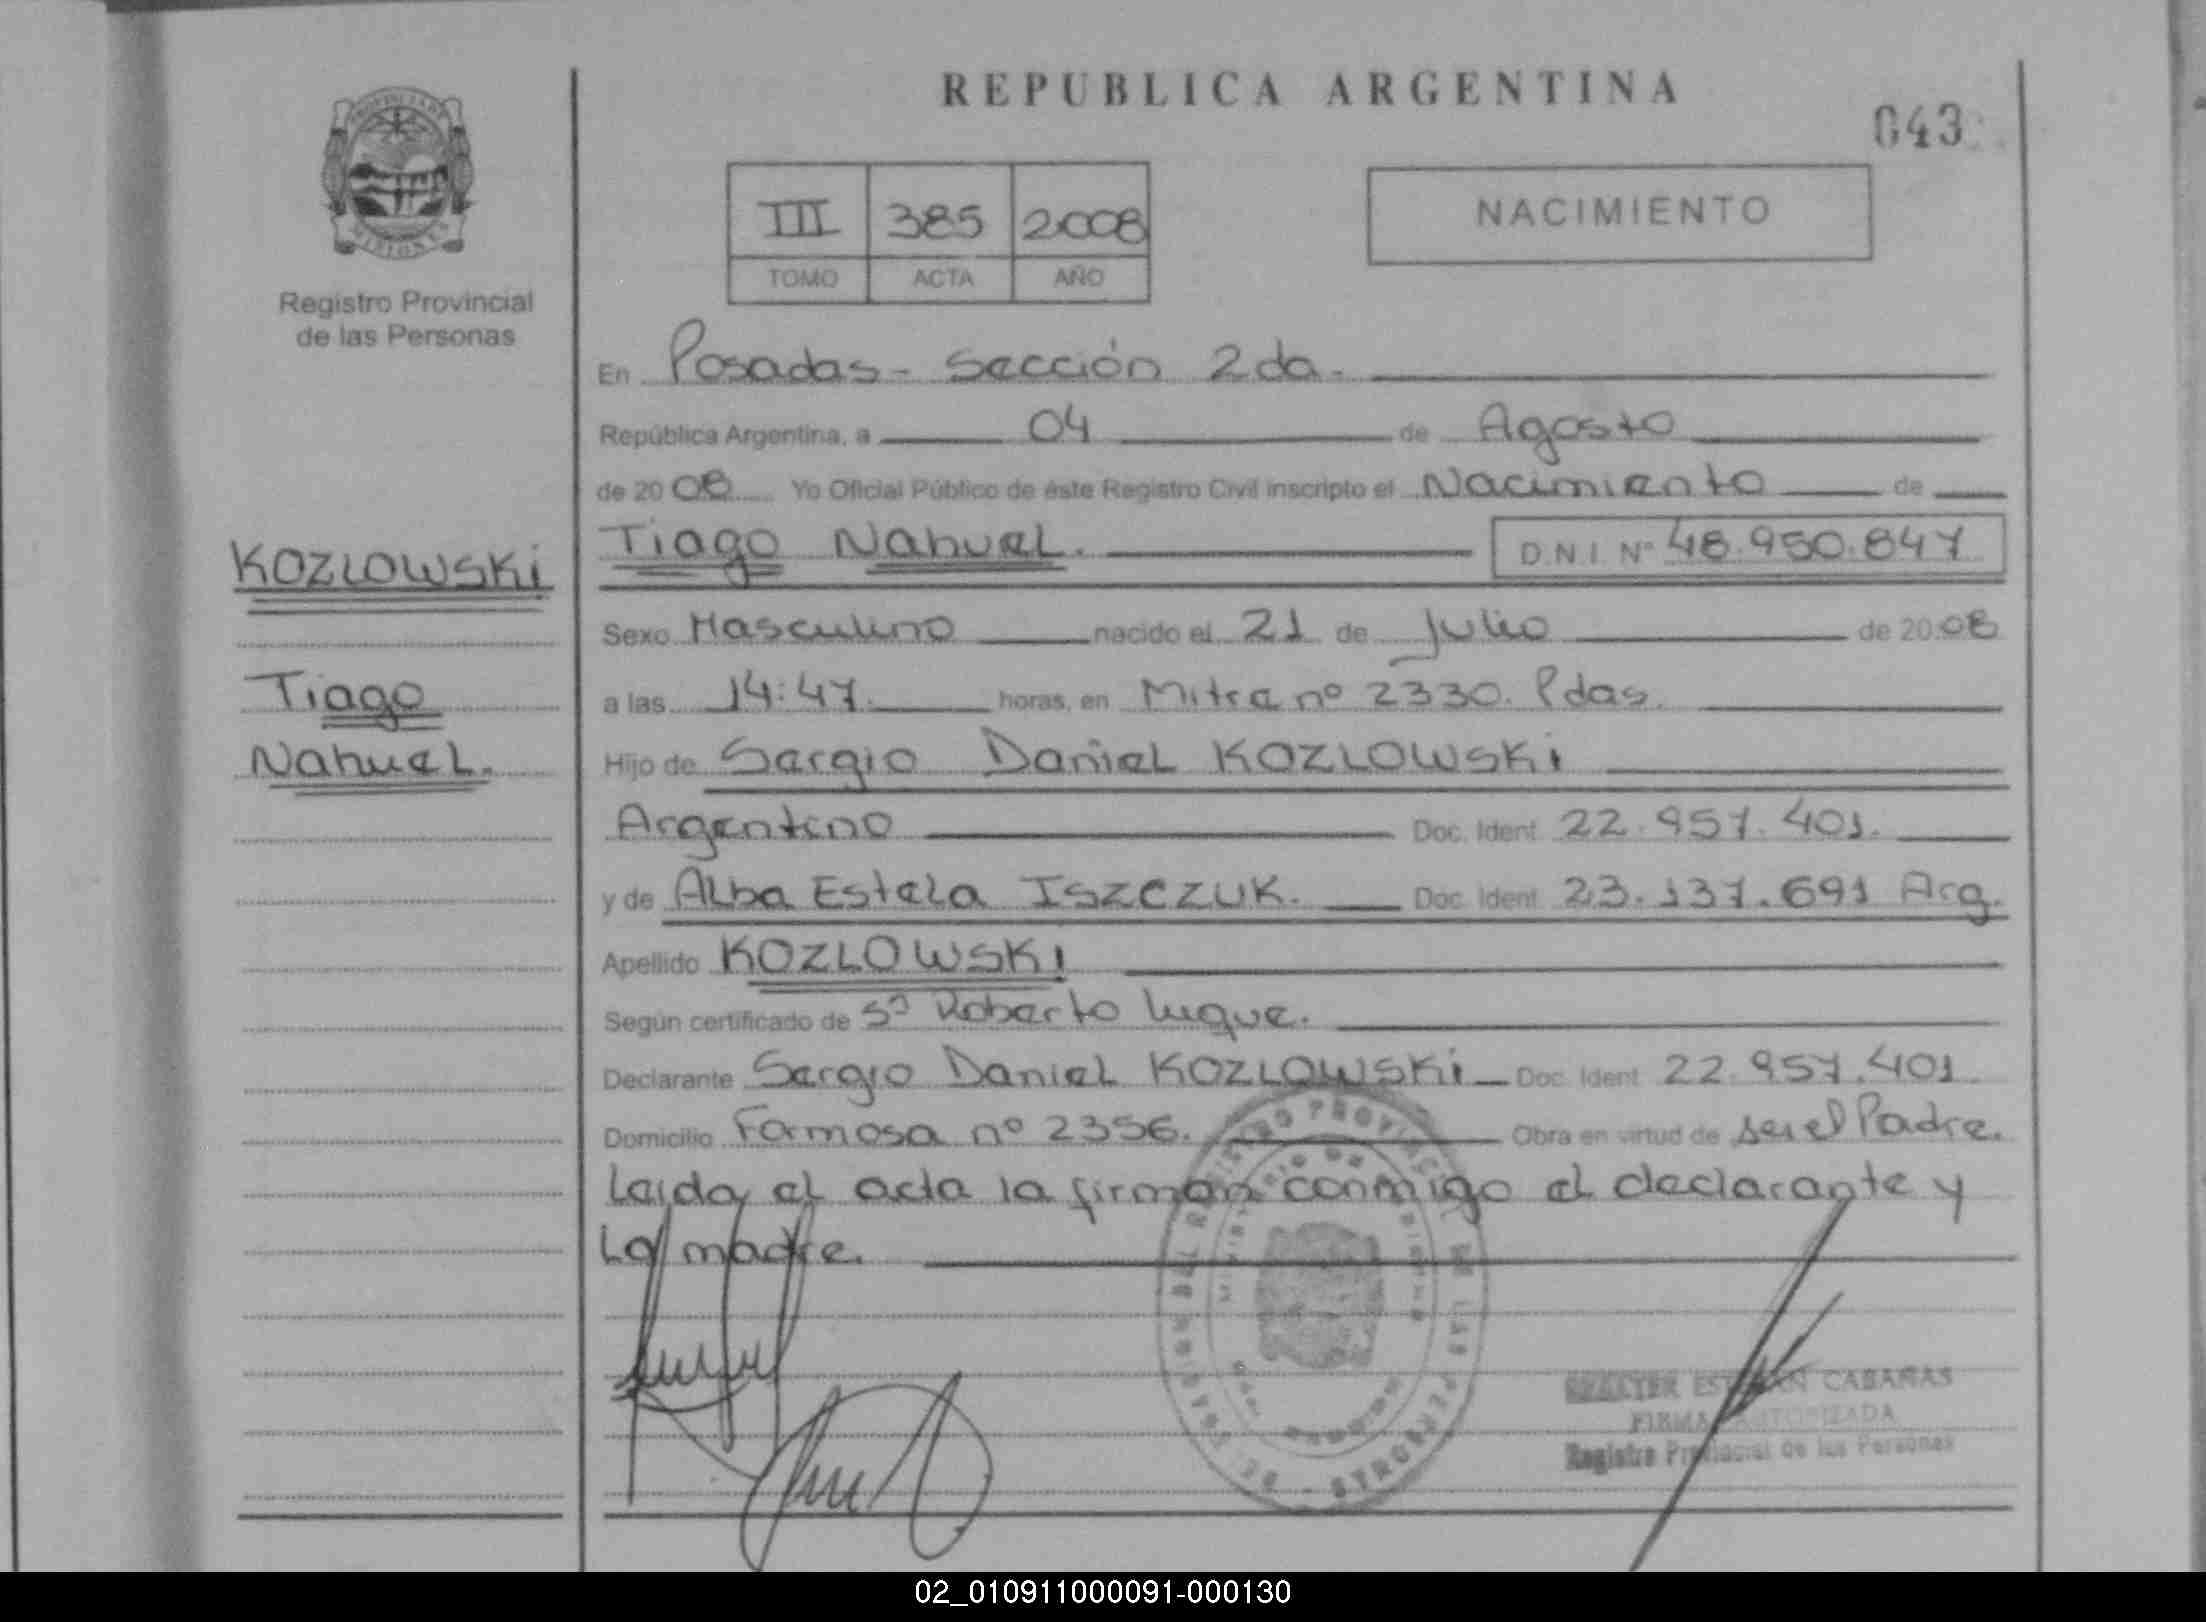 REPUBLICA ARGENTINA
043
PROVINCIA DE
MISIONES
Registro Provincial
de las Personas
III 385 2008
TOMO ACTA AÑO
NACIMIENTO
En Posadas - Sección 2da.
República Argentina, a 04 de Agosto
de 20 08 Yo Oficial Público de éste Registro Civil inscripto el Nacimiento de
Tiago Nahuel. D.N.I. Nº 48.950.847
KOZLOWSKi
Tiago
Nahuel.
Sexo Masculino nacido el 21 de Julio de 20 08
a las 14:47. horas, en Mitre nº 2330. Pdas.
Hijo de Sergio Daniel KOZLOWSKi
Argentino Doc. Ident 22.957.401.
y de Alba Estela ISZCZUK. Doc. Ident 23.137.691 Arg.
Apellido KOZLOWSKI
Según certificado de Roberto Luque.
Declarante Sergio Daniel KOZLOWSKi Doc. Ident 22.957.401
Domicilio Formosa nº 2356. Obra en virtud de ser el Padre.
Leida el acta la firman conmigo el declarante y
La madre.
REGISTRO PROVINCIAL DE LAS PERSONAS
ESTEBAN CABAÑAS
FIRMA AUTORIZADA
Registro Provincial de las Personas
02_010911000091-000130